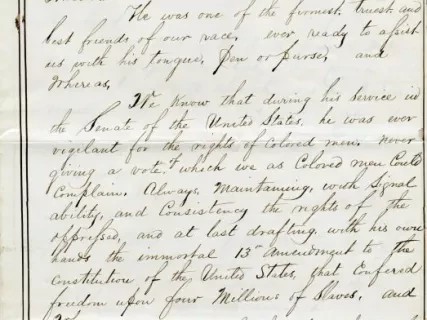 He was one of the firmest, truest and
best friends of our race, ever ready to assist
us with his tongue, Pen or purse, and
Whereas,
We Know that during his service in
the Senate of the United States, he was ever
vigilant for the rights of colored men. Never
giving a vote of which we as Colored men Could
Complain. Always, Maintaining, with Signal
ability, and Consistency the rights of the
oppressed, and at last drafting, with his own
hands the immortal 13th amendment to the
Constitution of the United States, that Confered
freedom upon four Millions of Slaves, and